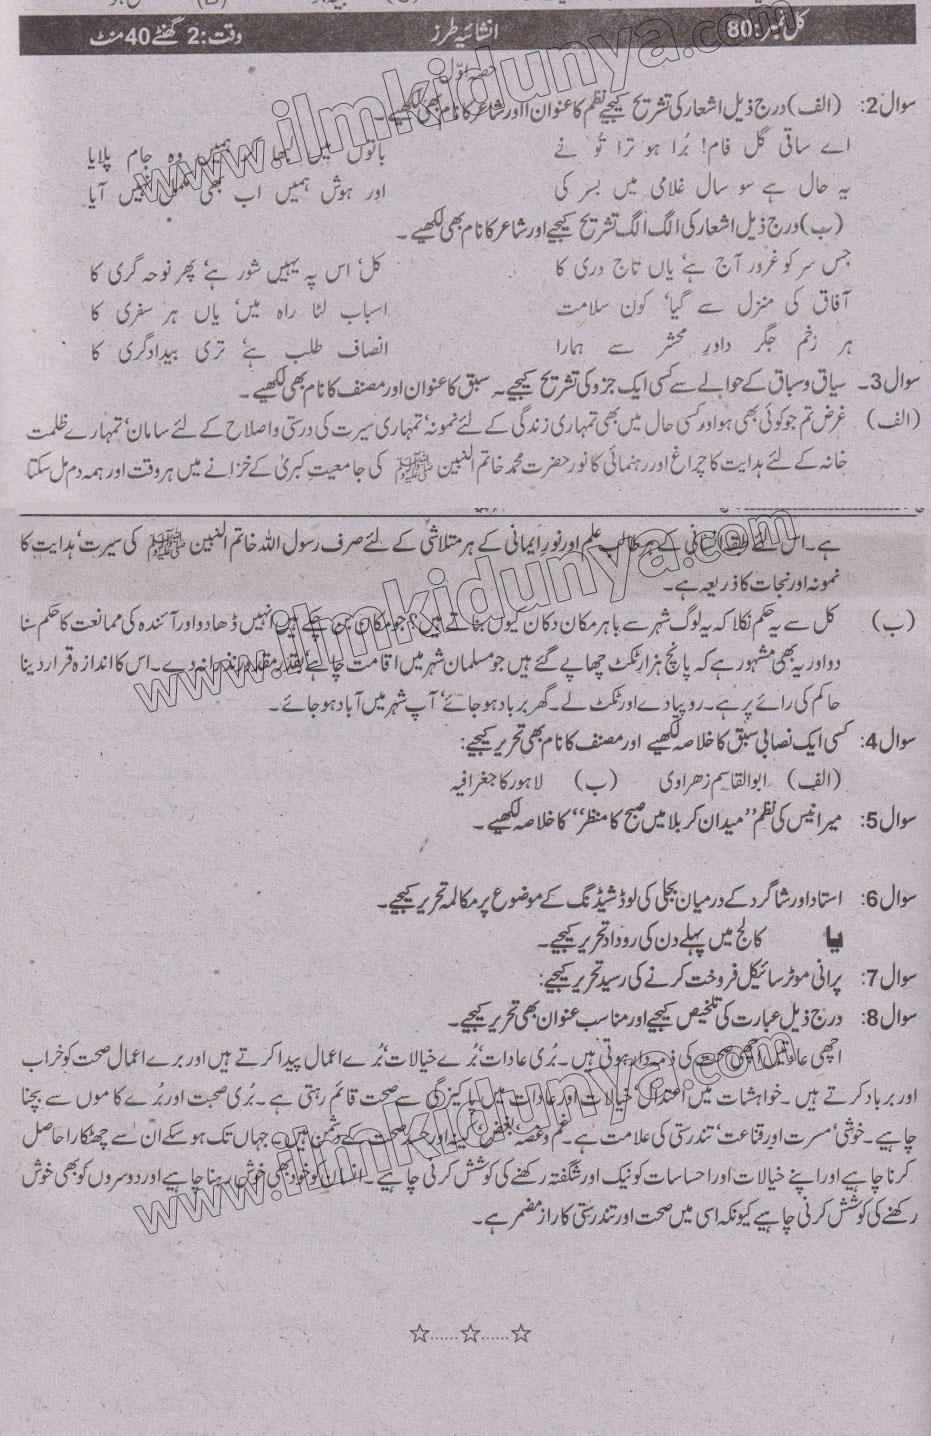 کل نمبر:80 انشائیہ طرز وقت:2 گھنٹے 40 منٹ
حصہ اوّل
سوال2: (الف) درج ذیل اشعار کی تشریح کیجیے نظم کا عنوان اور شاعر کا نام بھی لکھیے۔
اے ساقیِ گل فام! بُرا ہو ترا تُو نے باتوں میں لبھا کر ہمیں وہ جام پلایا
یہ حال ہے سو سال غلامی میں بسر کی اور ہوش ہمیں اب بھی مکمل نہیں آیا
(ب) درج ذیل اشعار کی الگ الگ تشریح کیجیے اور شاعر کا نام بھی لکھیے۔
جس سر کو غرور آج ہے' یاں تاج دری کا کل' اس پہ یہیں شور ہے' پھر نوحہ گری کا
آفاق کی منزل سے گیا' کون سلامت اسباب لٹا راہ میں' یاں ہر سفری کا
ہر زخم جگر داورِ محشر سے ہمارا انصاف طلب ہے' تری بیدادگری کا
سوال3۔ سیاق و سباق کے حوالے سے کسی ایک جزو کی تشریح کیجیے۔ سبق کا عنوان اور مصنف کا نام بھی لکھیے۔
(الف) غرض تم جو کوئی بھی ہو اور کسی حال میں بھی تمہاری زندگی کے لئے نمونہ' تمہاری سیرت کی درستی و اصلاح کے لئے سامان' تمہارے ظلمت
خانہ کے لئے ہدایت کا چراغ اور رہنمائی کا نور حضرت محمد خاتم النبین ﷺ کی جامعیتِ کبریٰ کے خزانے میں ہر وقت اور ہمہ دم مل سکتا
ہے۔ اس لئے طبقہ انسانی کے ہر طالب علم اور نورِ ایمانی کے ہر متلاشی کے لئے صرف رسول اللہ خاتم النبین ﷺ کی سیرت' ہدایت کا
نمونہ اور نجات کا ذریعہ ہے۔
(ب) کل سے یہ حکم نکلا کہ یہ لوگ شہر سے باہر مکان دکان کیوں بناتے ہیں؟ جو مکان بن چکے ہیں انہیں ڈھا دو اور آئندہ کی ممانعت کا حکم سنا
دو اور یہ بھی مشہور ہے کہ پانچ ہزار ٹکٹ چھاپے گئے ہیں جو مسلمان شہر میں اقامت چاہے' بقدر مقدور نذرانہ دے۔ اس کا اندازہ قرار دینا
حاکم کی رائے پر ہے۔ روپیا دے اور ٹکٹ لے۔ گھر برباد ہو جائے' آپ شہر میں آباد ہو جائے۔
سوال4: کسی ایک نصابی سبق کا خلاصہ لکھیے اور مصنف کا نام بھی تحریر کیجیے:
(الف) ابوالقاسم زھراوی (ب) لاہور کا جغرافیہ
سوال5: میر انیس کی نظم ''میدان کربلا میں صبح کا منظر'' کا خلاصہ لکھیے۔
سوال6: استاد اور شاگرد کے درمیان بجلی کی لوڈ شیڈنگ کے موضوع پر مکالمہ تحریر کیجیے۔
یا کالج میں پہلے دن کی روداد تحریر کیجیے۔
سوال7: پرانی موٹر سائیکل فروخت کرنے کی رسید تحریر کیجیے:
سوال8: درج ذیل عبارت کی تلخیص کیجیے اور مناسب عنوان بھی تحریر کیجیے۔
اچھی عادتیں اچھی صحت کی ذمہ دار ہوتی ہیں۔ بُری عادات' بُرے خیالات' بُرے اعمال پیدا کرتے ہیں اور برے اعمال صحت کو خراب
اور برباد کرتے ہیں۔ خواہشات میں اعتدال' خیالات اور عادات میں پاکیزگی سے صحت قائم رہتی ہے۔ بُری صحبت اور بُرے کاموں سے بچنا
چاہیے۔ خوشی' مسرت اور قناعت' تندرستی کی علامت ہے۔ غم و غصہ' بغض' کینہ اور حسد صحت کے دشمن ہیں۔ جہاں تک ہو سکے ان سے چھٹکارا حاصل
کرنا چاہیے اور اپنے خیالات اور احساسات کو نیک اور شگفتہ رکھنے کی کوشش کرنی چاہیے۔ انسان کو خود بھی خوش رہنا چاہیے اور دوسروں کو بھی خوش
رکھنے کی کوشش کرنی چاہیے کیونکہ اسی میں صحت اور تندرستی کا راز مضمر ہے۔
www.ilmkidunya.com
www.ilmkidunya.com
www.ilmkidunya.com